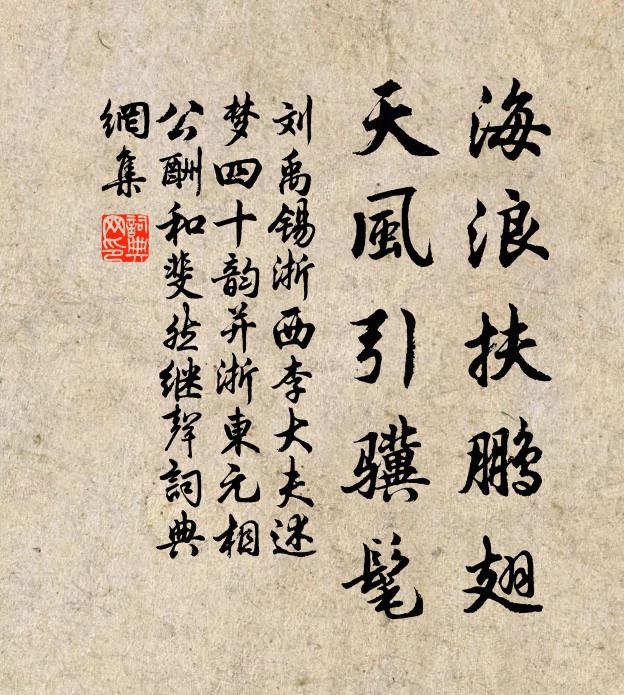 海浪扶鹏翅
天風引骥髦
刘禹锡浙西李大夫述
梦四十韵并浙東元相
公酬和斐然继聲詞典
網集
詞典网印